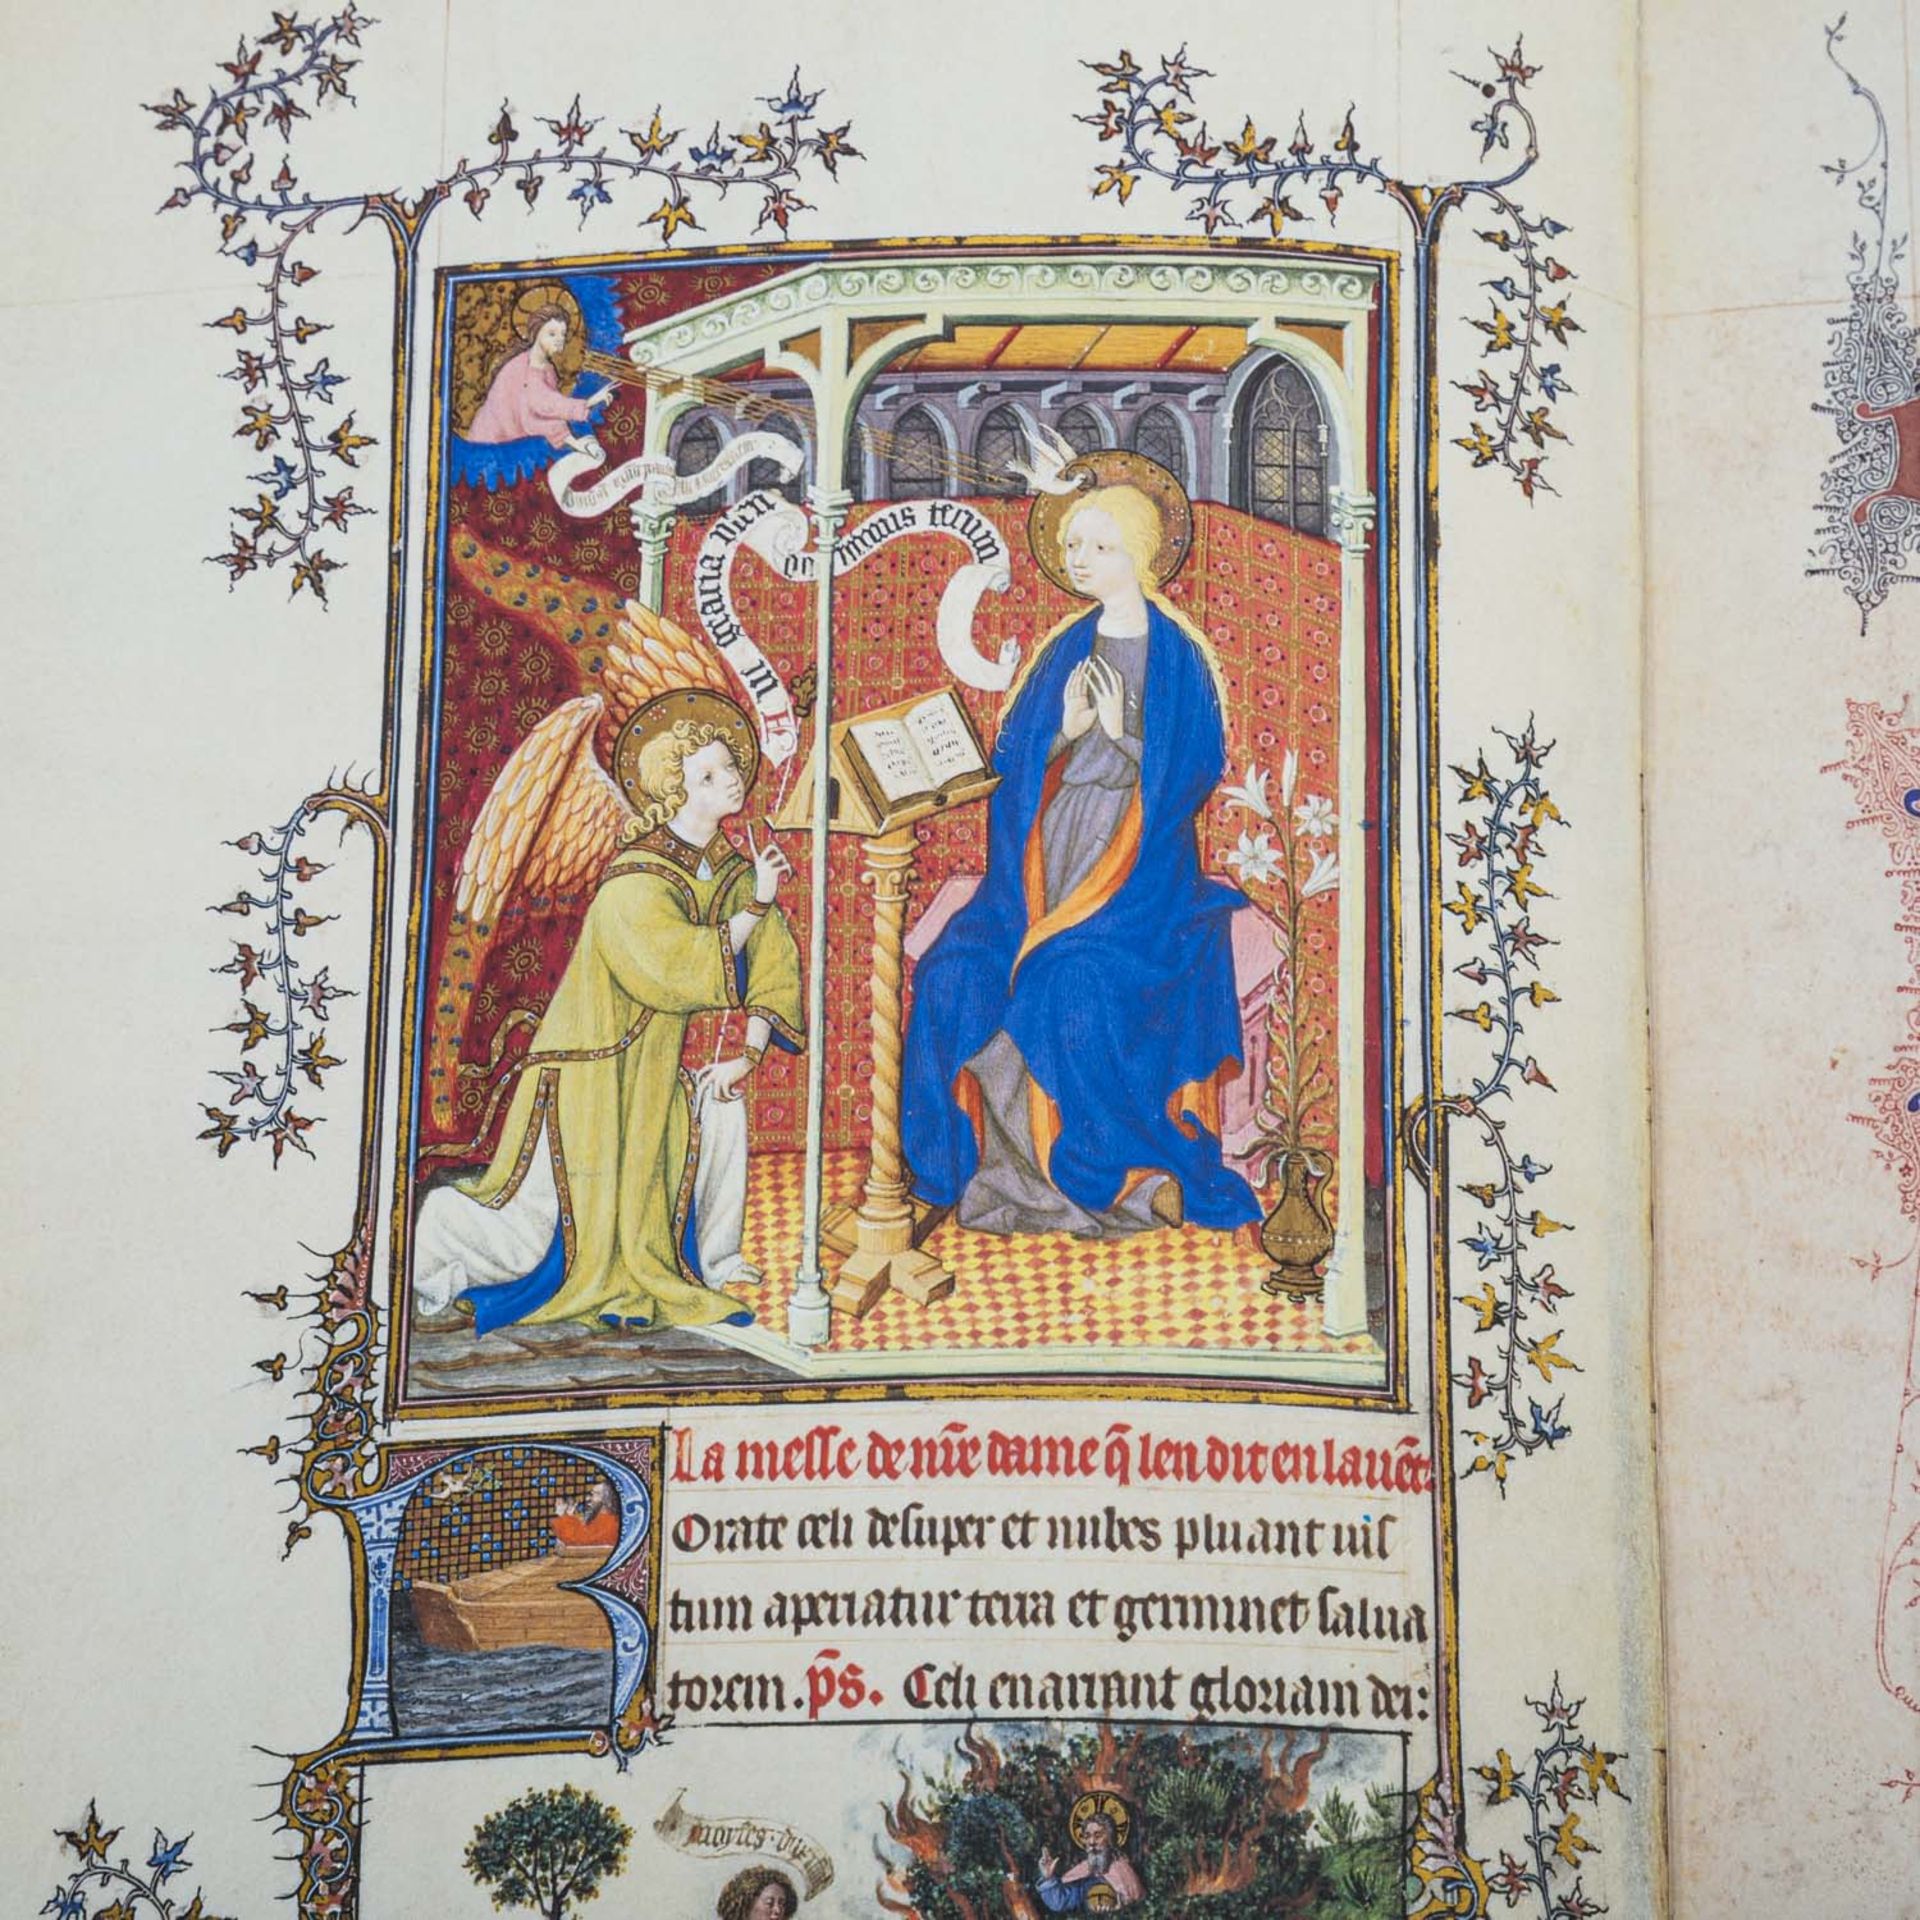 gracia plen
dominus tecum
La messe de nr̄e dame q̄ len dit en lauēt.
Rorate celi desuper et nubes pluant ius
tum aperiatur terra et germinet salua
torem. p̄s. Celi enarrant gloriam dei: